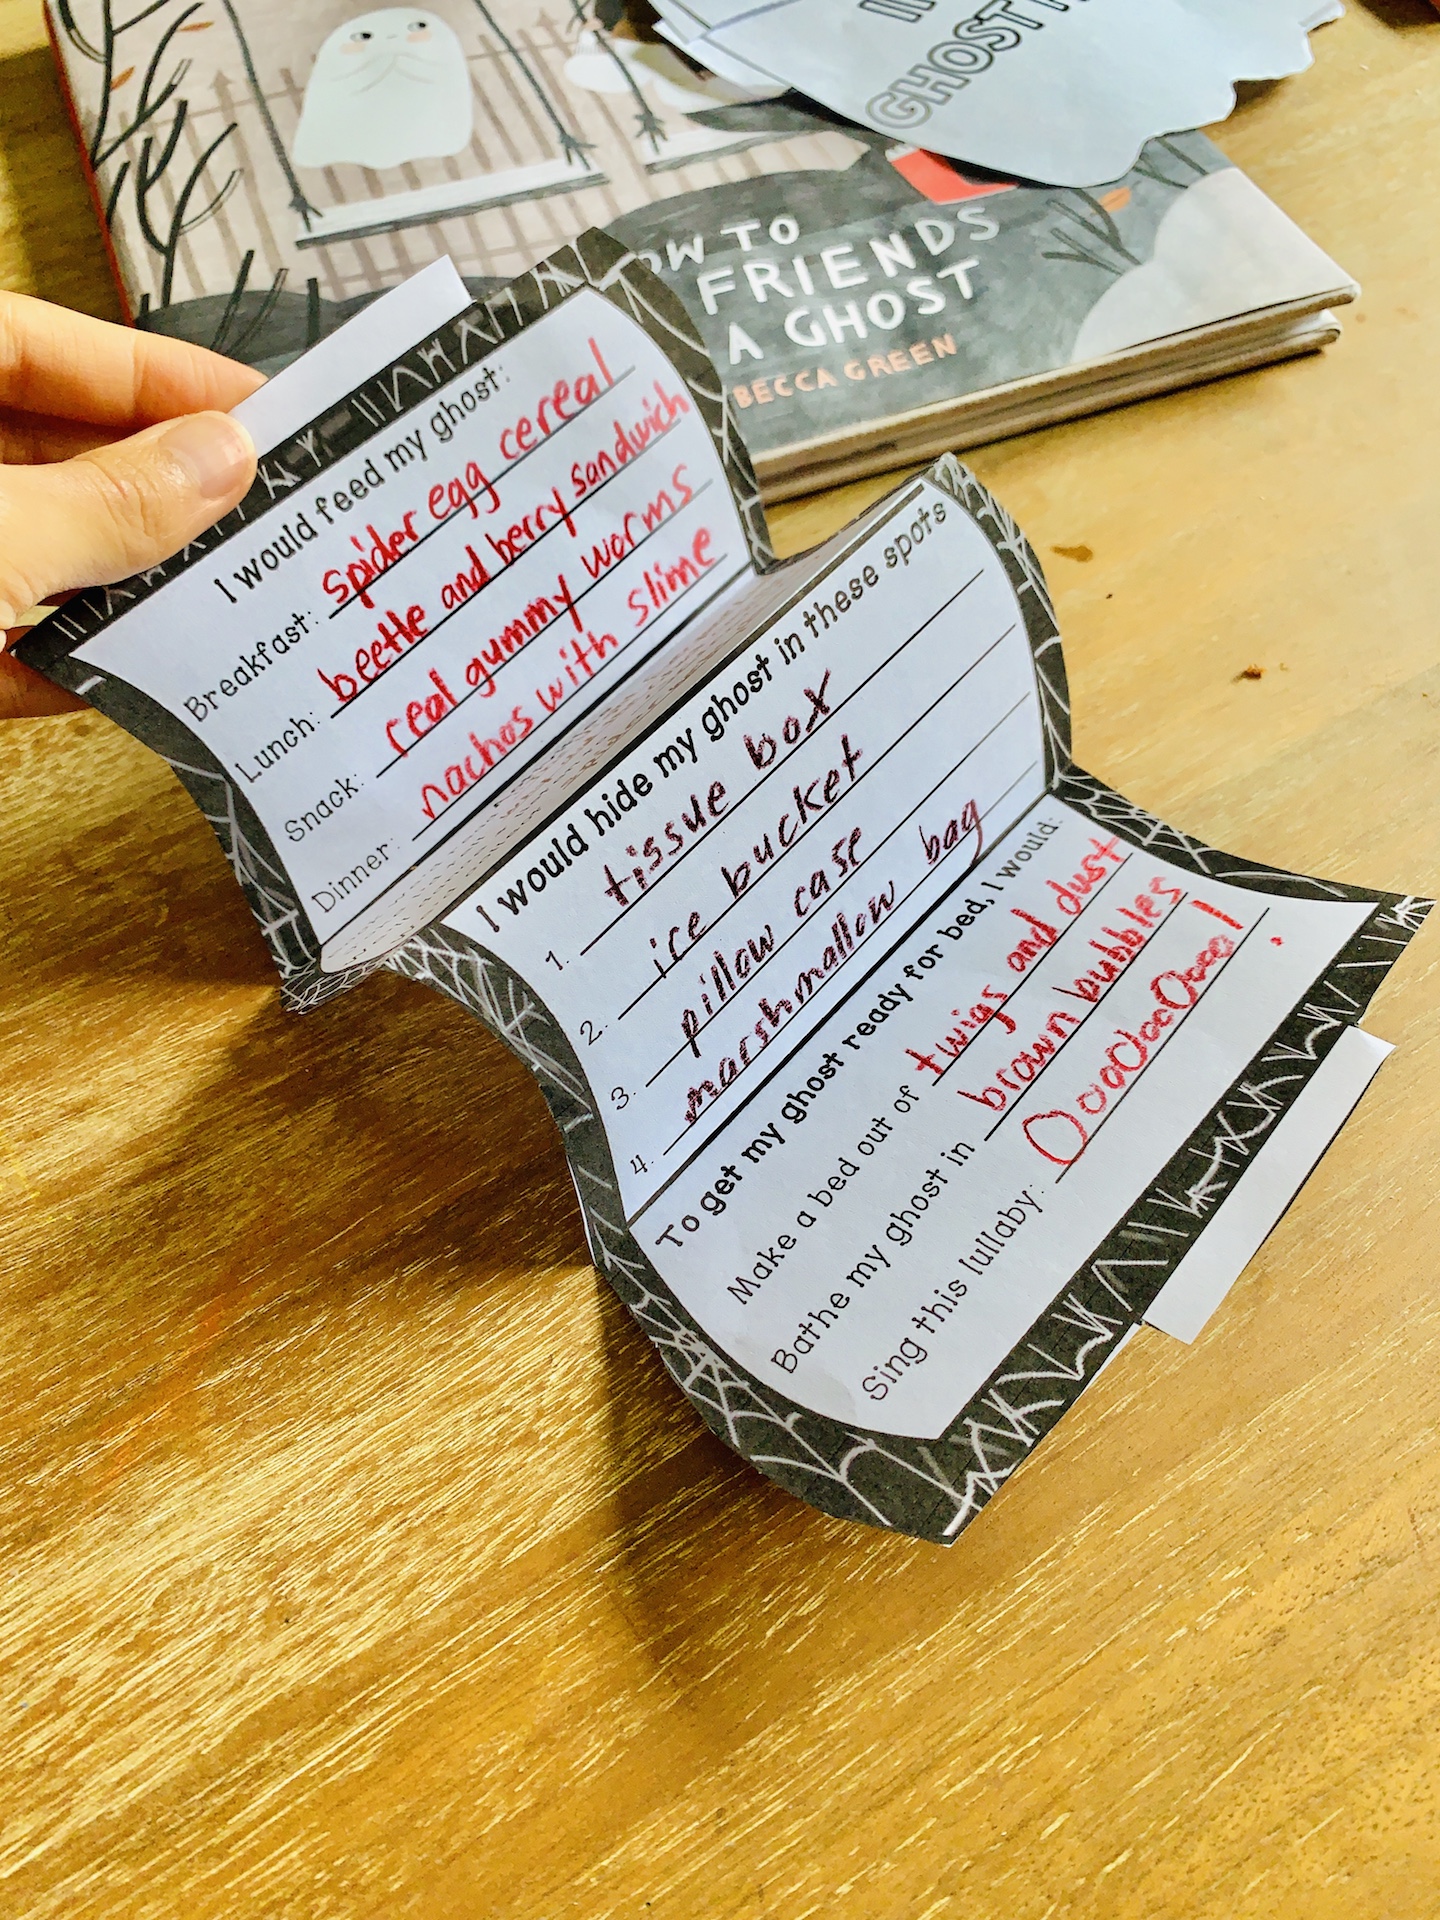 GHOST
OW TO
FRIENDS
A GHOST
BECCA GREEN
I would feed my ghost:
Breakfast: spider egg cereal
Lunch: beetle and berry sandwich
Snack: real gummy worms
Dinner: nachos with slime
I would hide my ghost in these spots
1. tissue box
2. ice bucket
3. pillow case
4. marshmallow bag
To get my ghost ready for bed, I would:
Make a bed out of twigs and dust
Bathe my ghost in brown bubbles
Sing this lullaby: OooOooOooo!